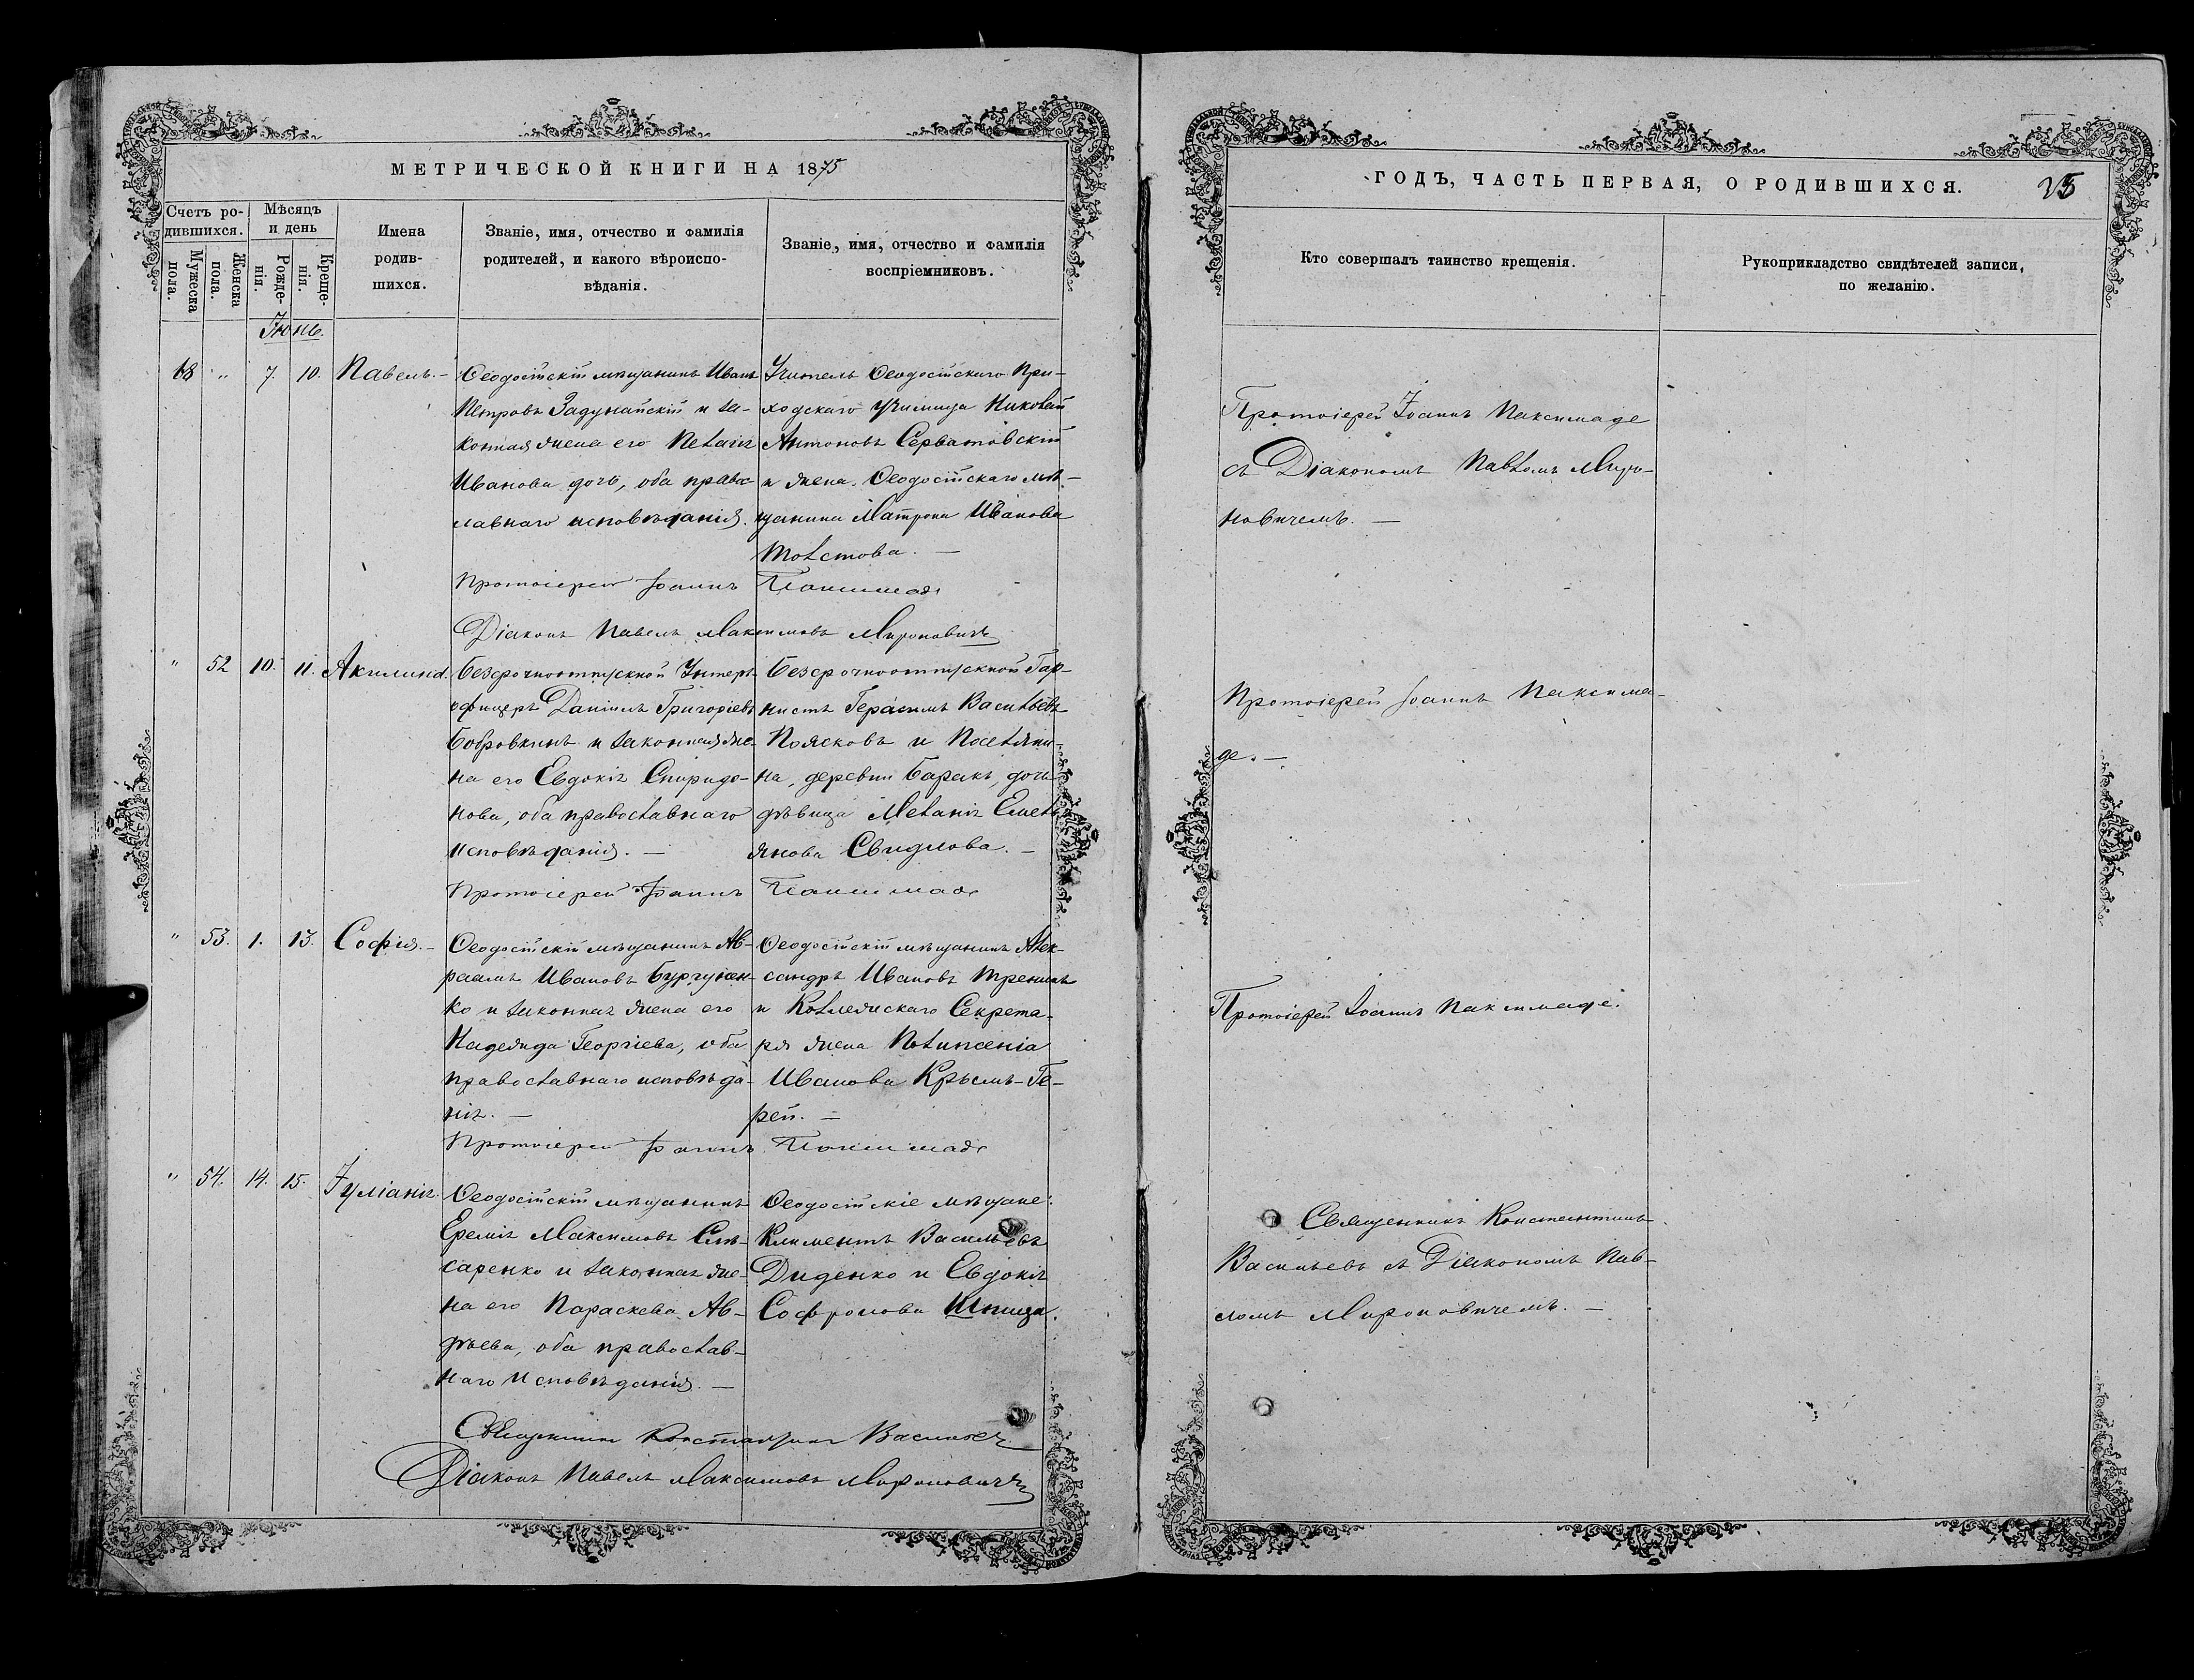 МЕТРИЧЕСКОЙ КНИГИ НА 1875
Счетъ ро-
дившихся.
Мужеска пола.
Женска пола.
Мѣсяцъ
и день
Рожде-
нія.
Креще-
нія.
Имена
родив-
шихся.
Званіе, имя, отчество и фамилія
родителей, и какого вѣроиспо-
вѣданія.
Званіе, имя, отчество и фамилія
воспріемниковъ.
Іюнь.
68 " 7. 10. Павелъ.-
Ѳеодосійскій мѣщанинъ Иванъ
Петровъ Задунайскій и за-
конная жена его Пелагія
Иванова дочь, оба право-
славнаго исповѣданія.
Учитель Ѳеодосійскаго При-
ходскаго училища Николай
Антоновъ Серватовскій
и жена Ѳеодосійскаго мѣ-
щанина Матрона Иванова
Толстова. —
Протоіерей Іоаннъ Паксимаде
Діаконъ Павелъ Максимовъ Мироновичъ
" 52 10. 11. Акилина.
Безсрочноотпускной Унтеръ-
офицеръ Даніилъ Григоріевъ
Бобровкинъ и законная же-
на его Евдокія Спиридо-
нова, оба православнаго
исповѣданія. —
Безсрочноотпускной Гор-
нистъ Герасимъ Васильевъ
Поясковъ и Поселяни-
на, деревни Баракъ, дочь
дѣвица Меланія Емель-
янова Свидлова. —
Протоіерей Іоаннъ Паксимаде
" 53. 1. 13. Софія.-
Ѳеодосійскій мѣщанинъ Ав-
раамъ Ивановъ Бургужен-
ко и законная жена его
Надежда Георгіева, оба
православнаго исповѣда-
нія. —
Ѳеодосійскій мѣщанинъ Алек-
сандръ Ивановъ Тренинъ
и Коллежскаго Секрета-
ря жена Поликсенія
Иванова Крымъ-Ге-
рей. —
Протоіерей Іоаннъ Паксимаде
" 54. 14. 15. Іуліанія.
Ѳеодосійскій мѣщанинъ
Еремія Максимовъ Слю-
саренко и законная же-
на его Параскева Ав-
дѣева, оба православ-
наго исповѣданія. —
Ѳеодосійскіе мѣщане:
Климентъ Васильевъ
Диденко и Евдокія
Софронова Шпица.
Священникъ Константинъ Васильевъ
Діаконъ Павелъ Максимовъ Мироновичъ
ГОДЪ, ЧАСТЬ ПЕРВАЯ, О РОДИВШИХСЯ.
35
Кто совершалъ таинство крещенія.
Рукоприкладство свидѣтелей записи,
по желанію.
Протоіерей Іоаннъ Паксимаде
съ Діакономъ Павломъ Миро-
новичемъ. —
Протоіерей Іоаннъ Паксима-
де. —
Протоіерей Іоаннъ Паксимаде.
Священникъ Константинъ
Васильевъ съ Діакономъ Пав-
ломъ Мироновичемъ. —